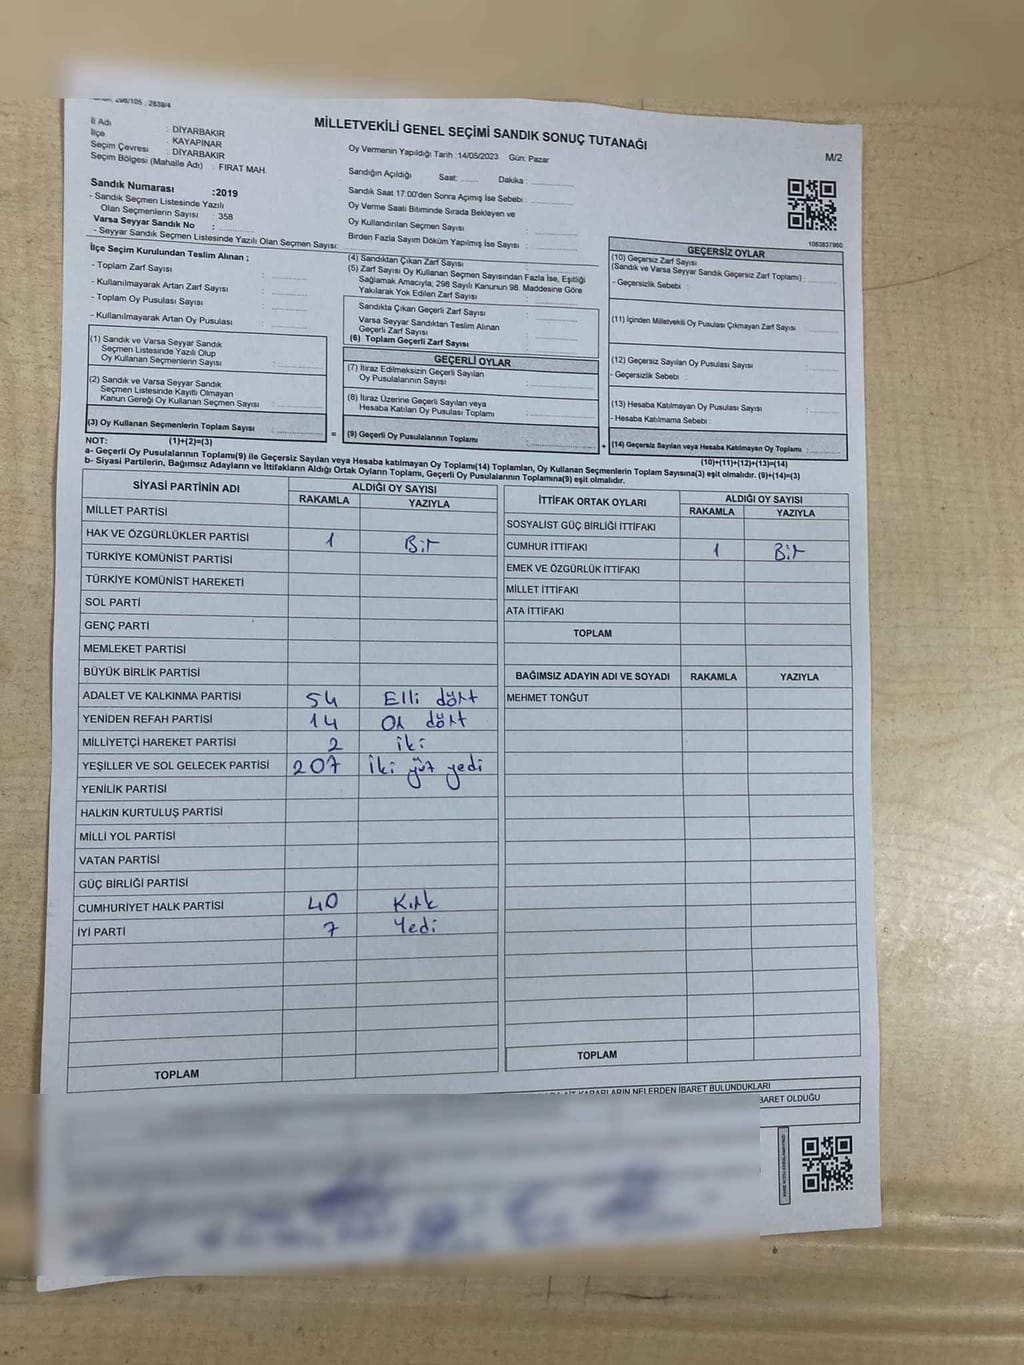 298/105 , 2839/4
MİLLETVEKİLİ GENEL SEÇİMİ SANDIK SONUÇ TUTANAĞI
M/2
İl Adı : DİYARBAKIR
İlçe : KAYAPINAR
Seçim Çevresi : DİYARBAKIR
Seçim Bölgesi (Mahalle Adı) : FIRAT MAH.
Sandık Numarası :2019
- Sandık Seçmen Listesinde Yazılı
Olan Seçmenlerin Sayısı : 358
Varsa Seyyar Sandık No :
- Seyyar Sandık Seçmen Listesinde Yazılı Olan Seçmen Sayısı:
Oy Vermenin Yapıldığı Tarih :14/05/2023 Gün: Pazar
Sandığın Açıldığı Saat: Dakika :
Sandık Saat 17:00'den Sonra Açımış İse Sebebi :
Oy Verme Saati Bitiminde Sırada Bekleyen ve
Oy Kullandırılan Seçmen Sayısı :
Birden Fazla Sayım Döküm Yapılmış İse Sayısı :
1083837960
İlçe Seçim Kurulundan Teslim Alınan ;
- Toplam Zarf Sayısı :
- Kullanılmayarak Artan Zarf Sayısı :
- Toplam Oy Pusulası Sayısı :
- Kullanılmayarak Artan Oy Pusulası :
(1) Sandık ve Varsa Seyyar Sandık
Seçmen Listesinde Yazılı Olup
Oy Kullanan Seçmenlerin Sayısı :
(2) Sandık ve Varsa Seyyar Sandık
Seçmen Listesinde Kayıtlı Olmayan
Kanun Gereği Oy Kullanan Seçmen Sayısı :
(3) Oy Kullanan Seçmenlerin Toplam Sayısı :
(4) Sandıktan Çıkan Zarf Sayısı :
(5) Zarf Sayısı Oy Kullanan Seçmen Sayısından Fazla İse, Eşitliği
Sağlamak Amacıyla; 298 Sayılı Kanunun 98. Maddesine Göre
Yakılarak Yok Edilen Zarf Sayısı :
Sandıkta Çıkan Geçerli Zarf Sayısı :
Varsa Seyyar Sandıktan Teslim Alınan
Geçerli Zarf Sayısı :
(6) Toplam Geçerli Zarf Sayısı :
GEÇERLİ OYLAR
(7) İtiraz Edilmeksizin Geçerli Sayılan
Oy Pusulalarının Sayısı :
(8) İtiraz Üzerine Geçerli Sayılan veya
Hesaba Katılan Oy Pusulası Toplamı :
= (9) Geçerli Oy Pusulalarının Toplamı :
GEÇERSİZ OYLAR
(10) Geçersiz Zarf Sayısı
(Sandık ve Varsa Seyyar Sandık Geçersiz Zarf Toplamı) :
- Geçersizlik Sebebi :
(11) İçinden Milletvekili Oy Pusulası Çıkmayan Zarf Sayısı :
(12) Geçersiz Sayılan Oy Pusulası Sayısı :
- Geçersizlik Sebebi :
(13) Hesaba Katılmayan Oy Pusulası Sayısı :
- Hesaba Katılmama Sebebi :
+ (14) Geçersiz Sayılan veya Hesaba Katılmayan Oy Toplamı :
NOT: (1)+(2)=(3)
(10)+(11)+(12)+(13)=(14)
a- Geçerli Oy Pusulalarının Toplamı(9) ile Geçersiz Sayılan veya Hesaba katılmayan Oy Toplamı(14) Toplamları, Oy Kullanan Seçmenlerin Toplam Sayısına(3) eşit olmalıdır. (9)+(14)=(3)
b- Siyasi Partilerin, Bağımsız Adayların ve İttifakların Aldığı Ortak Oyların Toplamı, Geçerli Oy Pusulalarının Toplamına(9) eşit olmalıdır.
SİYASİ PARTİNİN ADI ALDIĞI OY SAYISI
RAKAMLA YAZIYLA
MİLLET PARTİSİ
HAK VE ÖZGÜRLÜKLER PARTİSİ 1 Bir
TÜRKİYE KOMÜNİST PARTİSİ
TÜRKİYE KOMÜNİST HAREKETİ
SOL PARTİ
GENÇ PARTİ
MEMLEKET PARTİSİ
BÜYÜK BİRLİK PARTİSİ
ADALET VE KALKINMA PARTİSİ 54 Elli dört
YENİDEN REFAH PARTİSİ 14 On dört
MİLLİYETÇİ HAREKET PARTİSİ 2 iki
YEŞİLLER VE SOL GELECEK PARTİSİ 207 İki yüz yedi
YENİLİK PARTİSİ
HALKIN KURTULUŞ PARTİSİ
MİLLİ YOL PARTİSİ
VATAN PARTİSİ
GÜÇ BİRLİĞİ PARTİSİ
CUMHURİYET HALK PARTİSİ 40 Kırk
İYİ PARTİ 7 Yedi
TOPLAM
İTTİFAK ORTAK OYLARI ALDIĞI OY SAYISI
RAKAMLA YAZIYLA
SOSYALİST GÜÇ BİRLİĞİ İTTİFAKI
CUMHUR İTTİFAKI 1 Bir
EMEK VE ÖZGÜRLÜK İTTİFAKI
MİLLET İTTİFAKI
ATA İTTİFAKI
TOPLAM
BAĞIMSIZ ADAYIN ADI VE SOYADI RAKAMLA YAZIYLA
MEHMET TONĞUT
TOPLAM
KARARLARIN NELERDEN İBARET BULUNDUKLARI
OLDUĞU